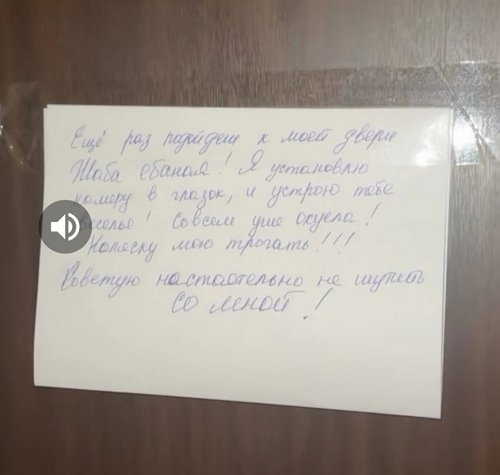 Ещё раз подойдёш к моей двери
Жаба ебаная! Я установлю
камеру в глазок, и устрою тебе
веселье! Совсем уже охуела!
Коляску мою трогать!!!
Советую настоятельно не шутить
со мной!